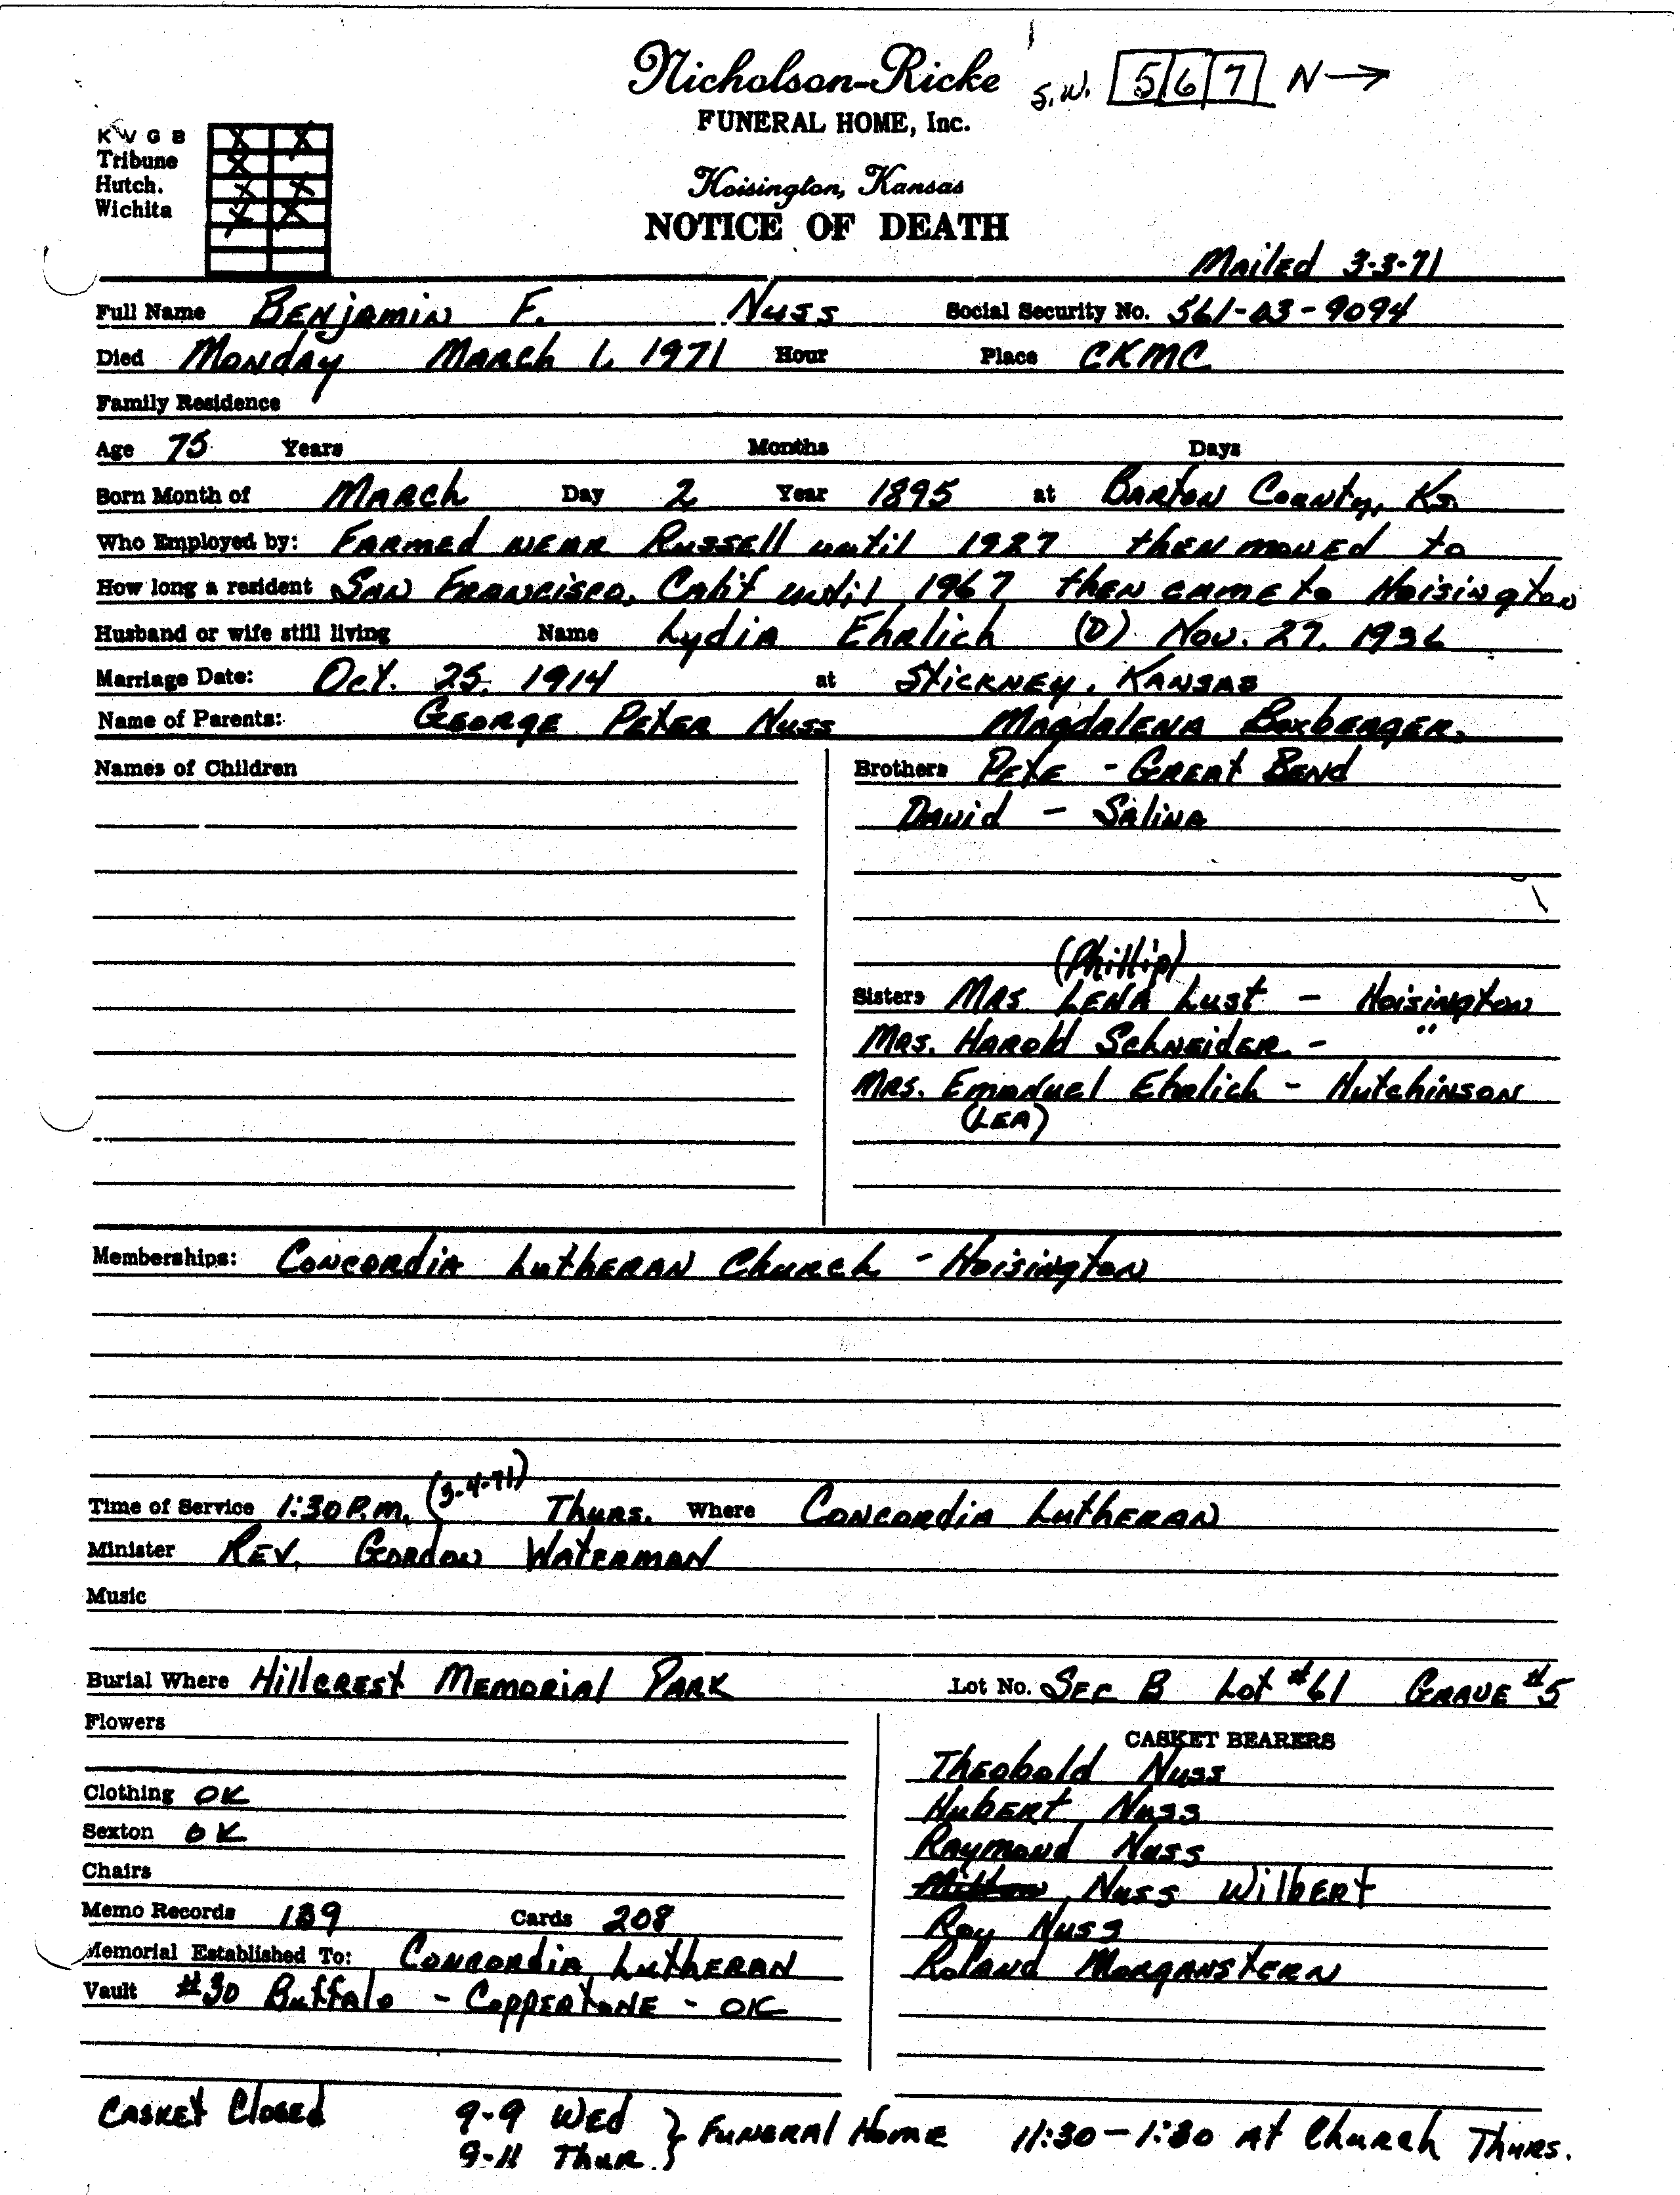 Nicholson-Ricke S.W. 5 6 7 N →
FUNERAL HOME, Inc.
Hoisington, Kansas
NOTICE OF DEATH
K V G B X X
Tribune X
Hutch. X X
Wichita X X
Mailed 3-3-71
Full Name Benjamin F. Nuss Social Security No. 561-03-9094
Died Monday March 1, 1971 Hour Place CKMC
Family Residence
Age 75 Years Months Days
Born Month of March Day 2 Year 1895 at Barton County, Ks.
Who Employed by: Farmed near Russell until 1927 then moved to
How long a resident San Francisco, Calif until 1967 then came to Hoisington
Husband or wife still living Name Lydia Ehrlich (D) Nov. 27, 1936
Marriage Date: Oct. 25, 1914 at Stickney, Kansas
Name of Parents: George Peter Nuss Magdalena Boxberger.
Names of Children
Brothers Pete - Great Bend
David - Salina
(Phillip)
Sisters Mrs. Lena Lust - Hoisington
Mrs. Harold Schneider - "
Mrs. Emanuel Ehrlich - Hutchinson
(Lea)
Memberships: Concordia Lutheran Church - Hoisington
Time of Service 1:30 P.m. (3-4-71) Thurs. Where Concordia Lutheran
Minister Rev. Gordon Waterman
Music
Burial Where Hillcrest Memorial Park Lot No. Sec B Lot #61 Grave #5
Flowers
Clothing OK
Sexton OK
Chairs
Memo Records 139 Cards 208
Memorial Established To: Concordia Lutheran
Vault #30 Buffalo - Coppertone - OK
CASKET BEARERS
Theobold Nuss
Hubert Nuss
Raymond Nuss
Milton, Nuss Wilbert
Roy Nuss
Roland Morganstern
Casket Closed 9-9 Wed } Funeral Home 11:30 - 1:30 At Church Thurs.
9-11 Thur.